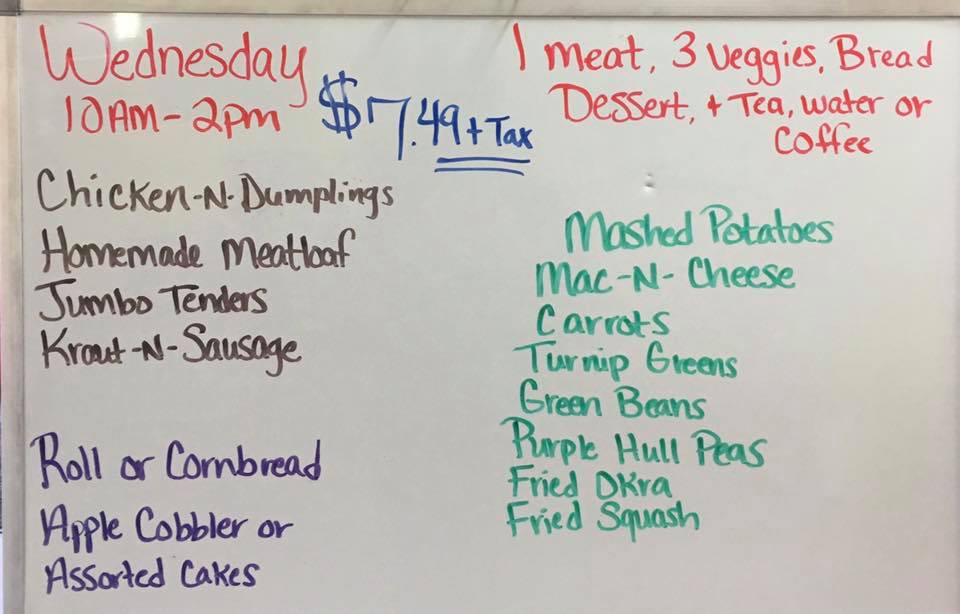 Wednesday
10AM-2pm
$7.49 + Tax
1 meat, 3 Veggies, Bread
Dessert, + Tea, water or
Coffee
Chicken-N-Dumplings
Homemade Meatloaf
Jumbo Tenders
Kraut-N-Sausage
Roll or Cornbread
Apple Cobbler or
Assorted Cakes
Mashed Potatoes
Mac-N-Cheese
Carrots
Turnip Greens
Green Beans
Purple Hull Peas
Fried Okra
Fried Squash